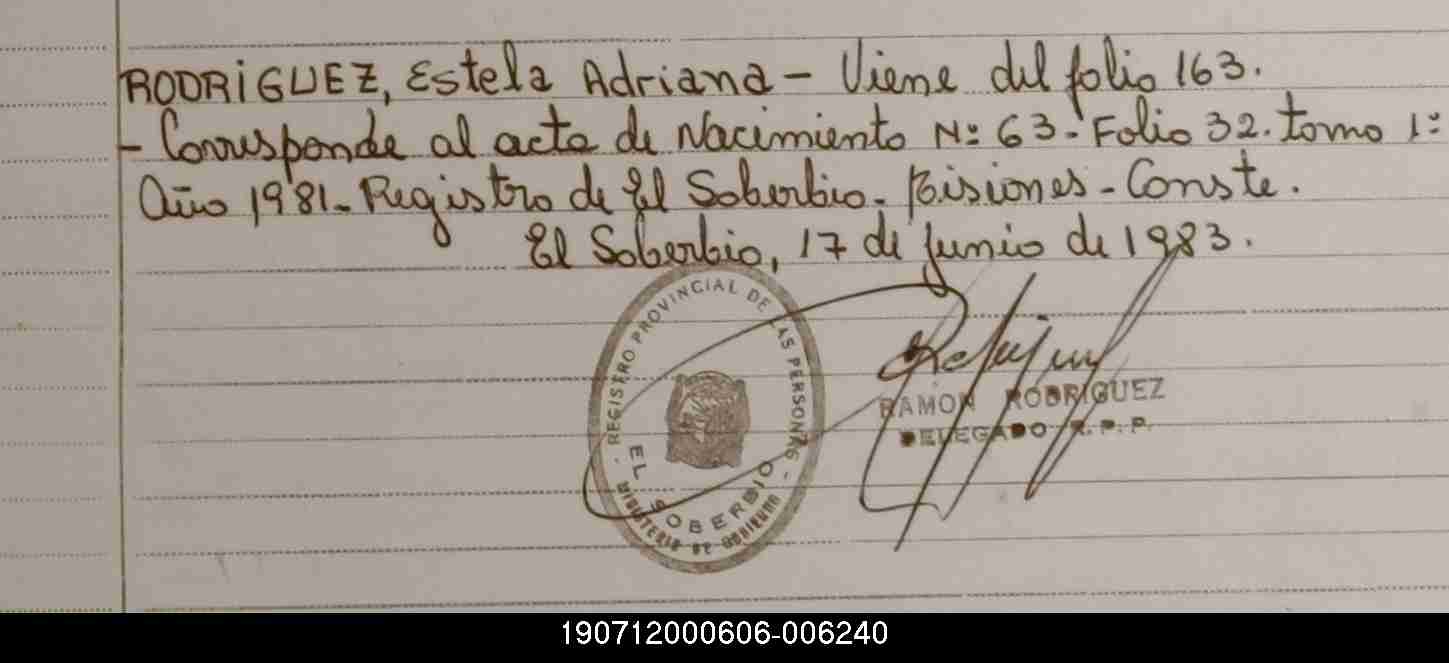 RODRIGUEZ, Estela Adriana - Viene del folio 163.
- Corresponde al acta de Nacimiento Nº 63 - Folio 32. tomo 1º
Año 1981 - Registro de El Soberbio - Misiones - Conste.
El Soberbio, 17 de Junio de 1983.
REGISTRO PROVINCIAL DE LAS PERSONAS
EL SOBERBIO
MINISTERIO DE GOBIERNO
RAMON RODRIGUEZ
DELEGADO R.P.P.
190712000606-006240